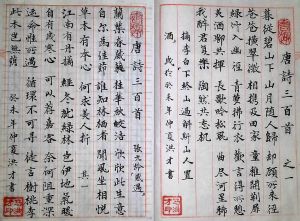 唐詩三百首 之一
暮從碧山下 山月隨人歸 卻顧所來徑
蒼蒼橫翠微 相攜及田家 童稚開荊扉
綠竹入幽徑 青蘿拂行衣 歡言得所憩
美酒聊共揮 長歌吟松風 曲盡河星稀
我醉君復樂 陶然共忘機
摘李白下終山過斛斯山人置
酒 歲次癸未年仲夏洪才書
唐詩三百首 張九齡感遇
蘭葉春葳蕤 桂華秋皎潔 欣欣此生意
自爾為佳節 誰知林棲者 聞風坐相悅
草木有本心 何求美人折 其二
江南有丹橘 經冬猶綠林 豈伊地氣暖
自有歲寒心 可以薦嘉客 奈何阻重深
運命唯所遇 循環不可尋 徒言樹桃李
此木豈無蔭 癸未年仲夏洪才書